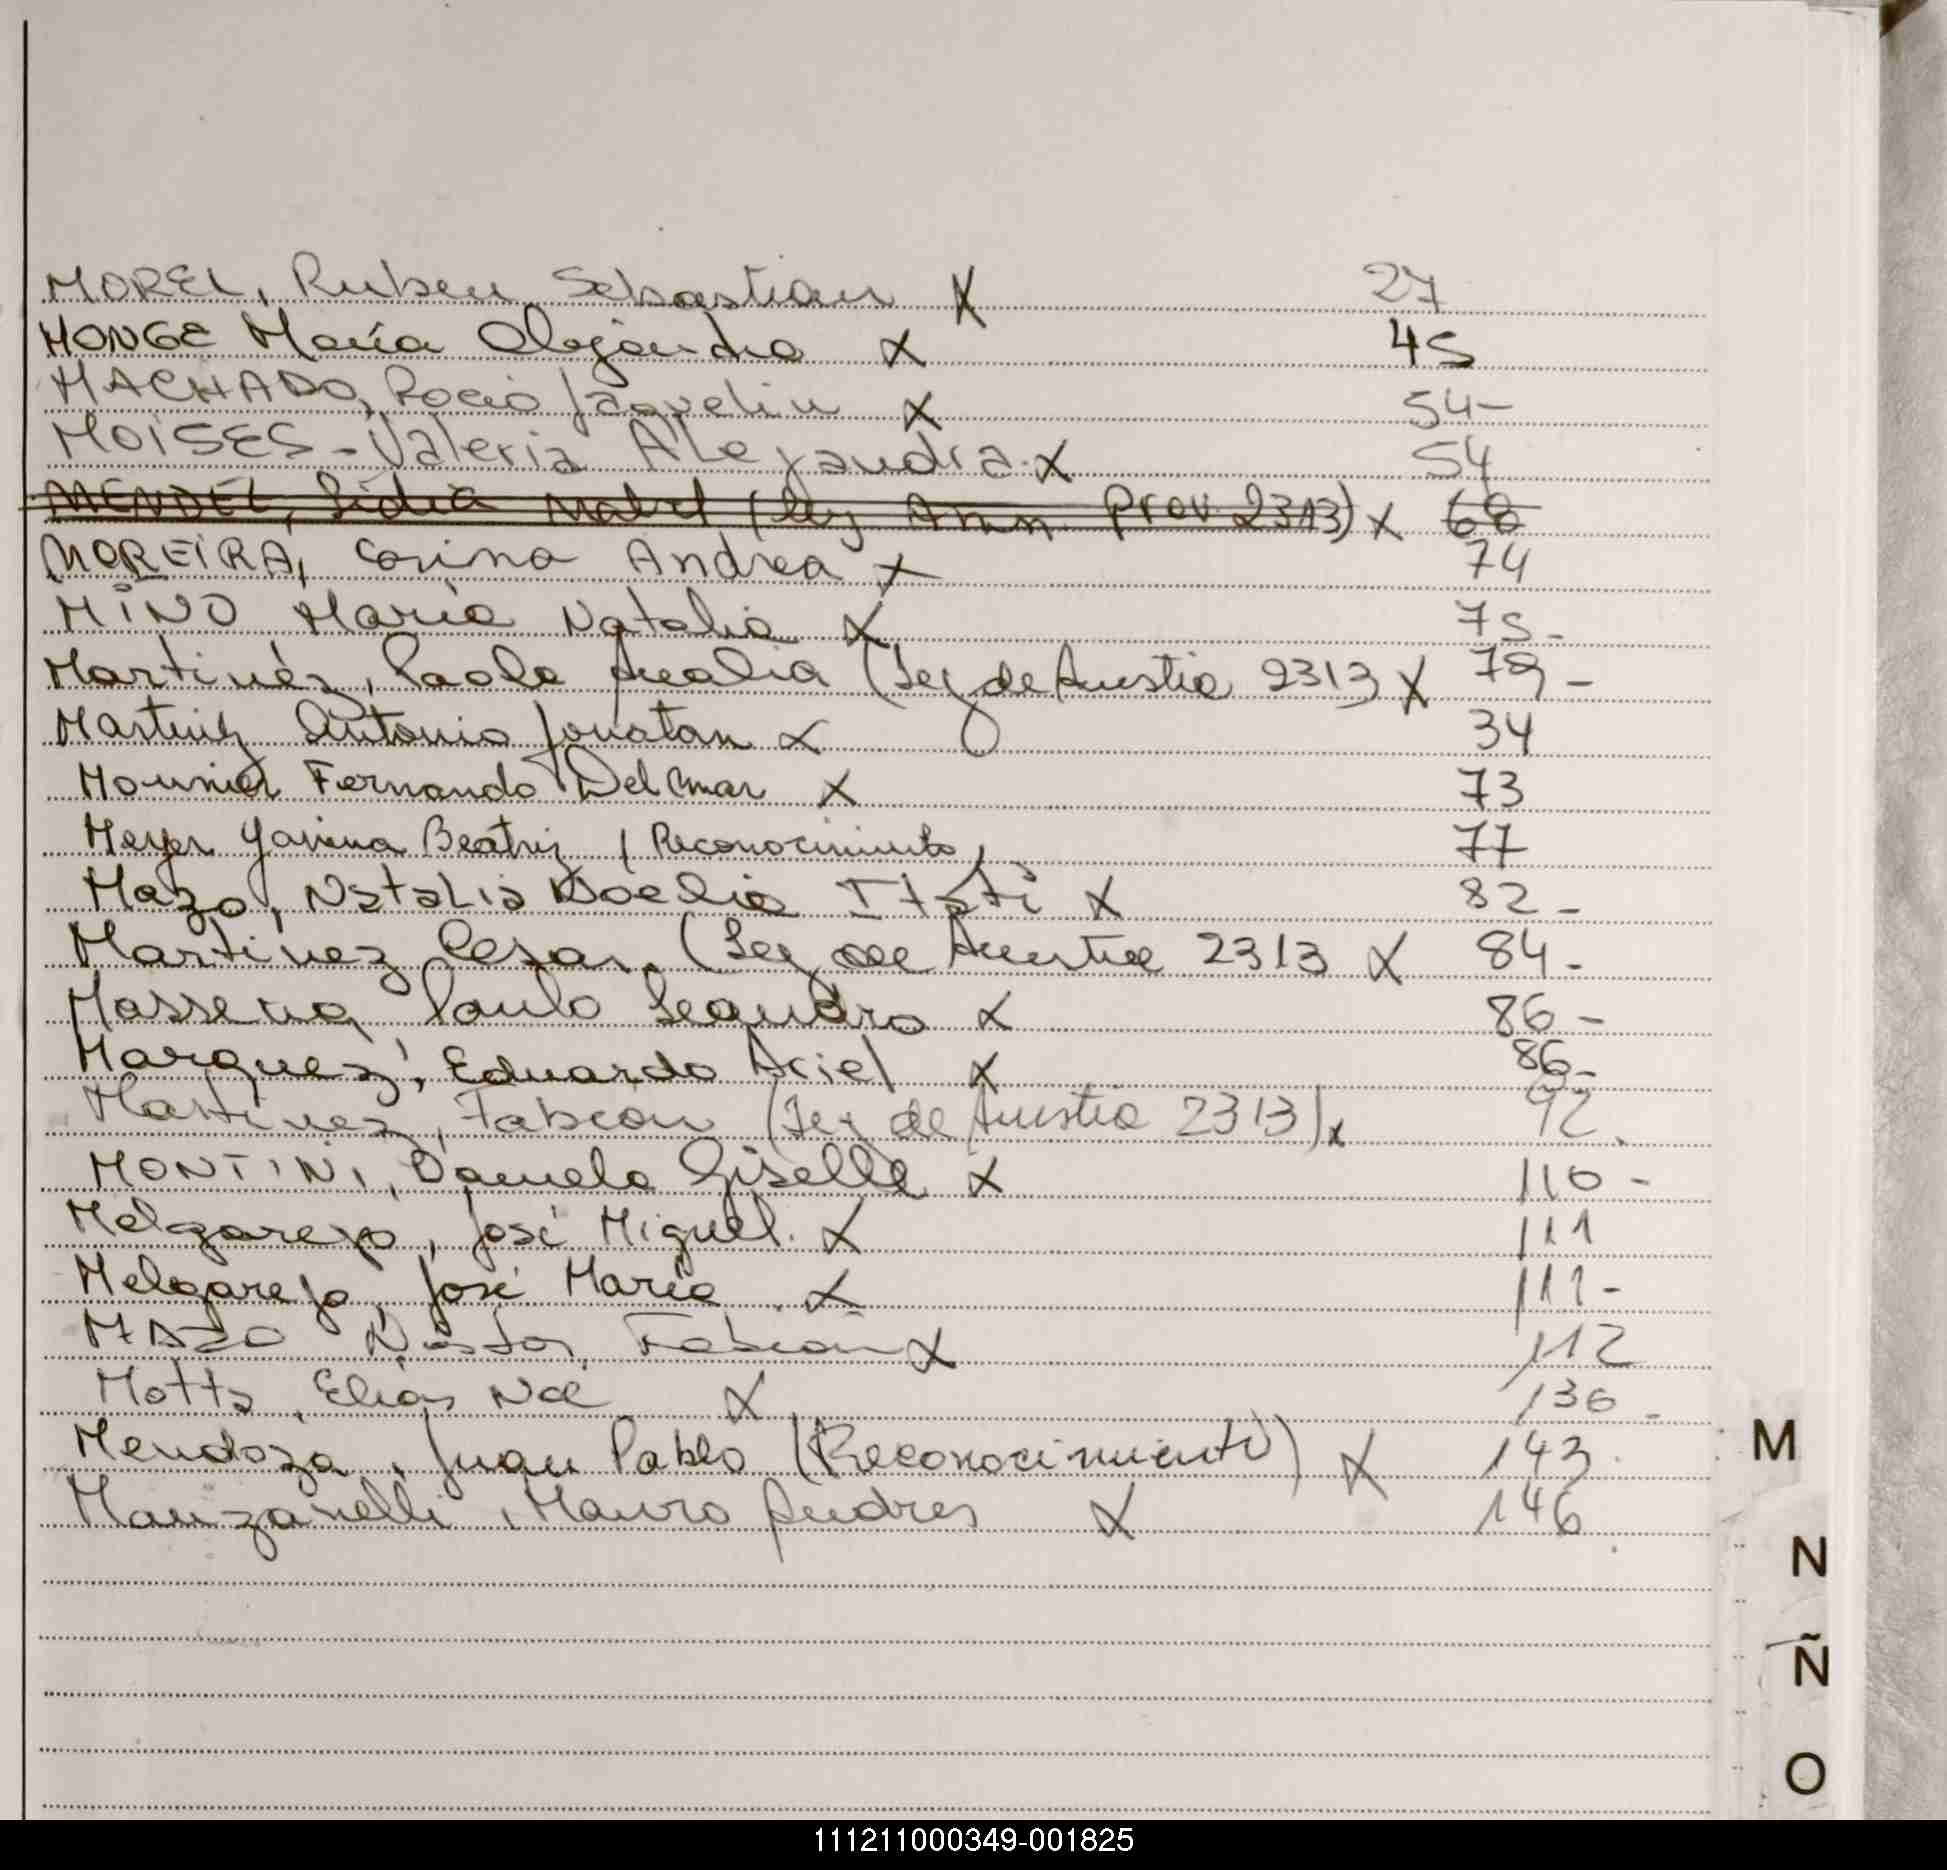 MOREL, Ruben Sebastian X 27
MONGE Maria Alejandra X 45
MACHADO, Rocio Jaquelin X 54-
MOISES - Valeria Alejandra. X 54
MENDEL, Lidia Mabel (ley Prov. 2313) X 68
MOREIRA, Corina Andrea X 74
MIÑO Maria Natalia X 75-
Martinéz, Paola Analia (Ley de Amnistia 2313 X 79-
Martinez Antonio Jonatan X 34
Mounier Fernando Delmar X 73
Meyer Yanina Beatriz (Reconocimiento) 77
Mazo, Natalia Noelia Itati X 82-
Martinez Cesar. (Ley de Amnistia 2313 X 84-
Massena Paulo Leandro X 86-
Marquéz, Eduardo Ariel X 86-
Martinez, Fabian (Ley de Amnistia 2313) X 92.
MONTINI, Daniela Giselle X 110-
Melgarejo, José Miguel. X 111
Melgarejo, José Maria. X 111-
MAZO Nestor Fabian X 112
Motta, Elias Noé X 136-
Mendoza, Juan Pablo (Reconocimiento) X 143.
Manzanelli, Mauro Andres X 146
M
N
Ñ
O
111211000349-001825